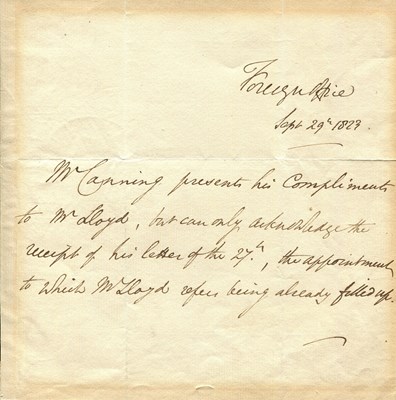 Foreign Office
Sept 29th 1823.
Mr Canning presents his Compliments
to Mr Lloyd, but can only acknowledge the
receipt of his letter of the 27th, the appointment,
to which Mr Lloyd refers being already filled up.